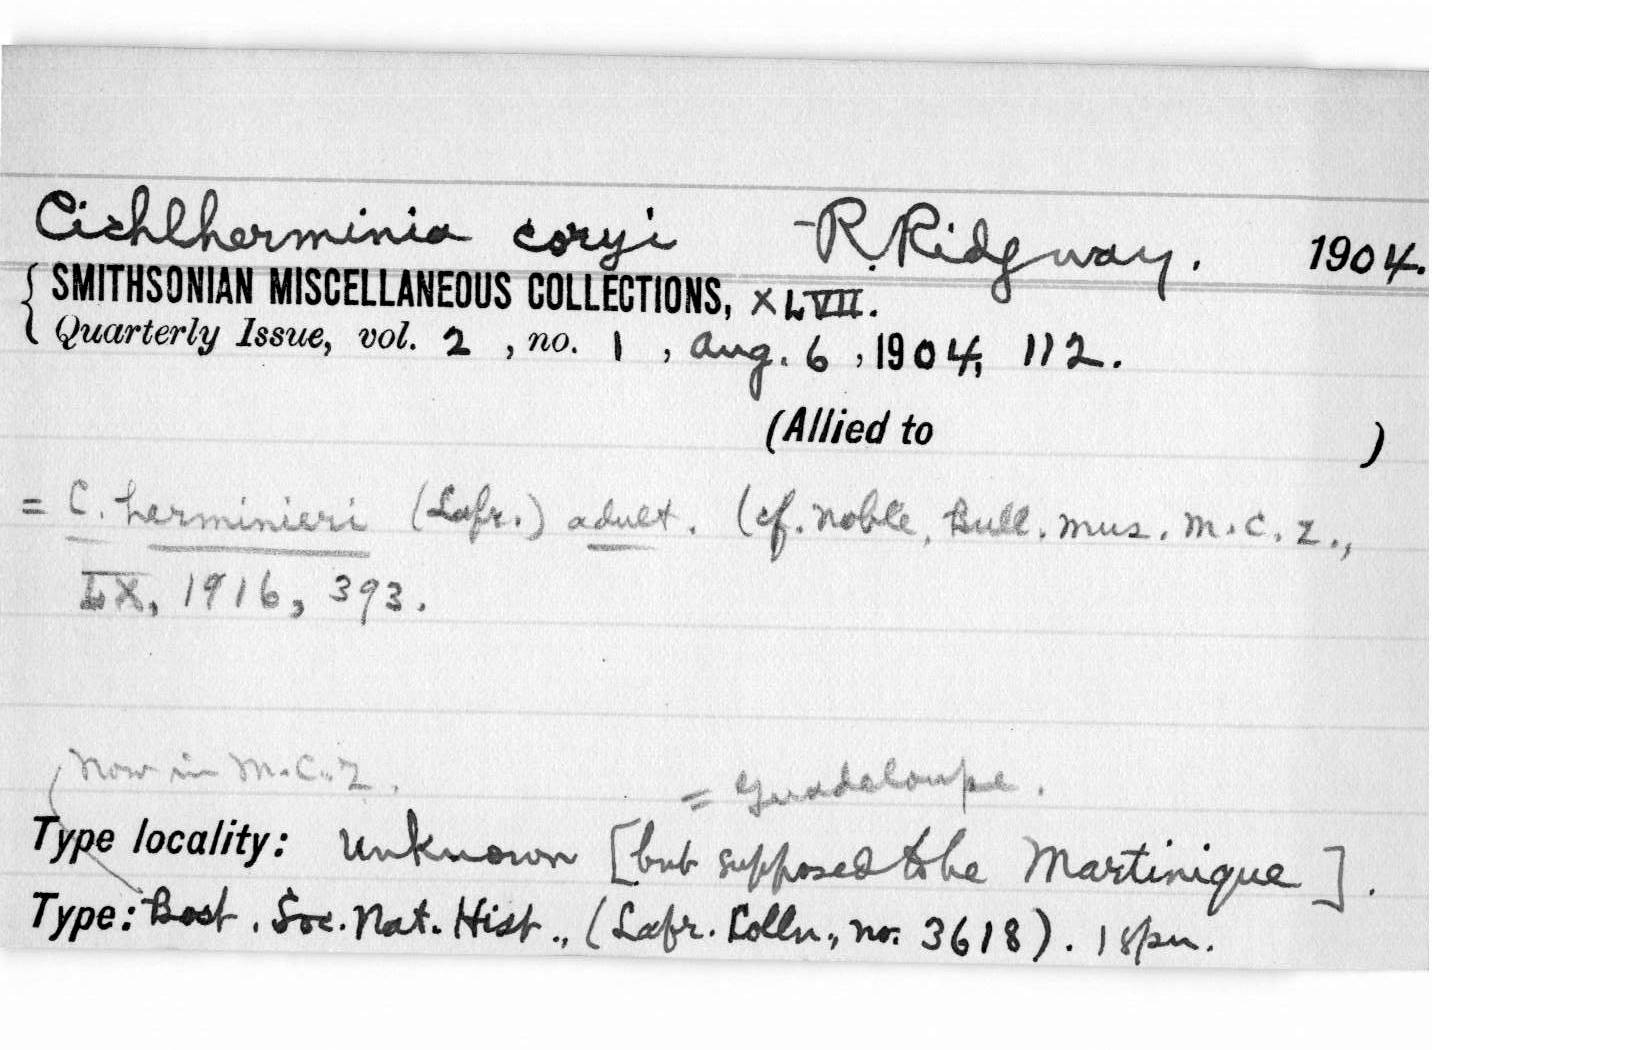 Cichlherminia coryi R. Ridgway. 1904.
SMITHSONIAN MISCELLANEOUS COLLECTIONS, XLVII.
Quarterly Issue, vol. 2, no. 1, Aug. 6, 1904, 112.
(Allied to )
= C. herminieri (Lafr.) adult. (cf. Noble, Bull. Mus. M.C.Z.,
LX, 1916, 393.
Now in M.C.Z.
= Guadaloupe.
Type locality: Unknown [but supposed to be Martinique].
Type: Bost. Soc. Nat. Hist., (Lafr. Colln., no. 3618). 1 spn.